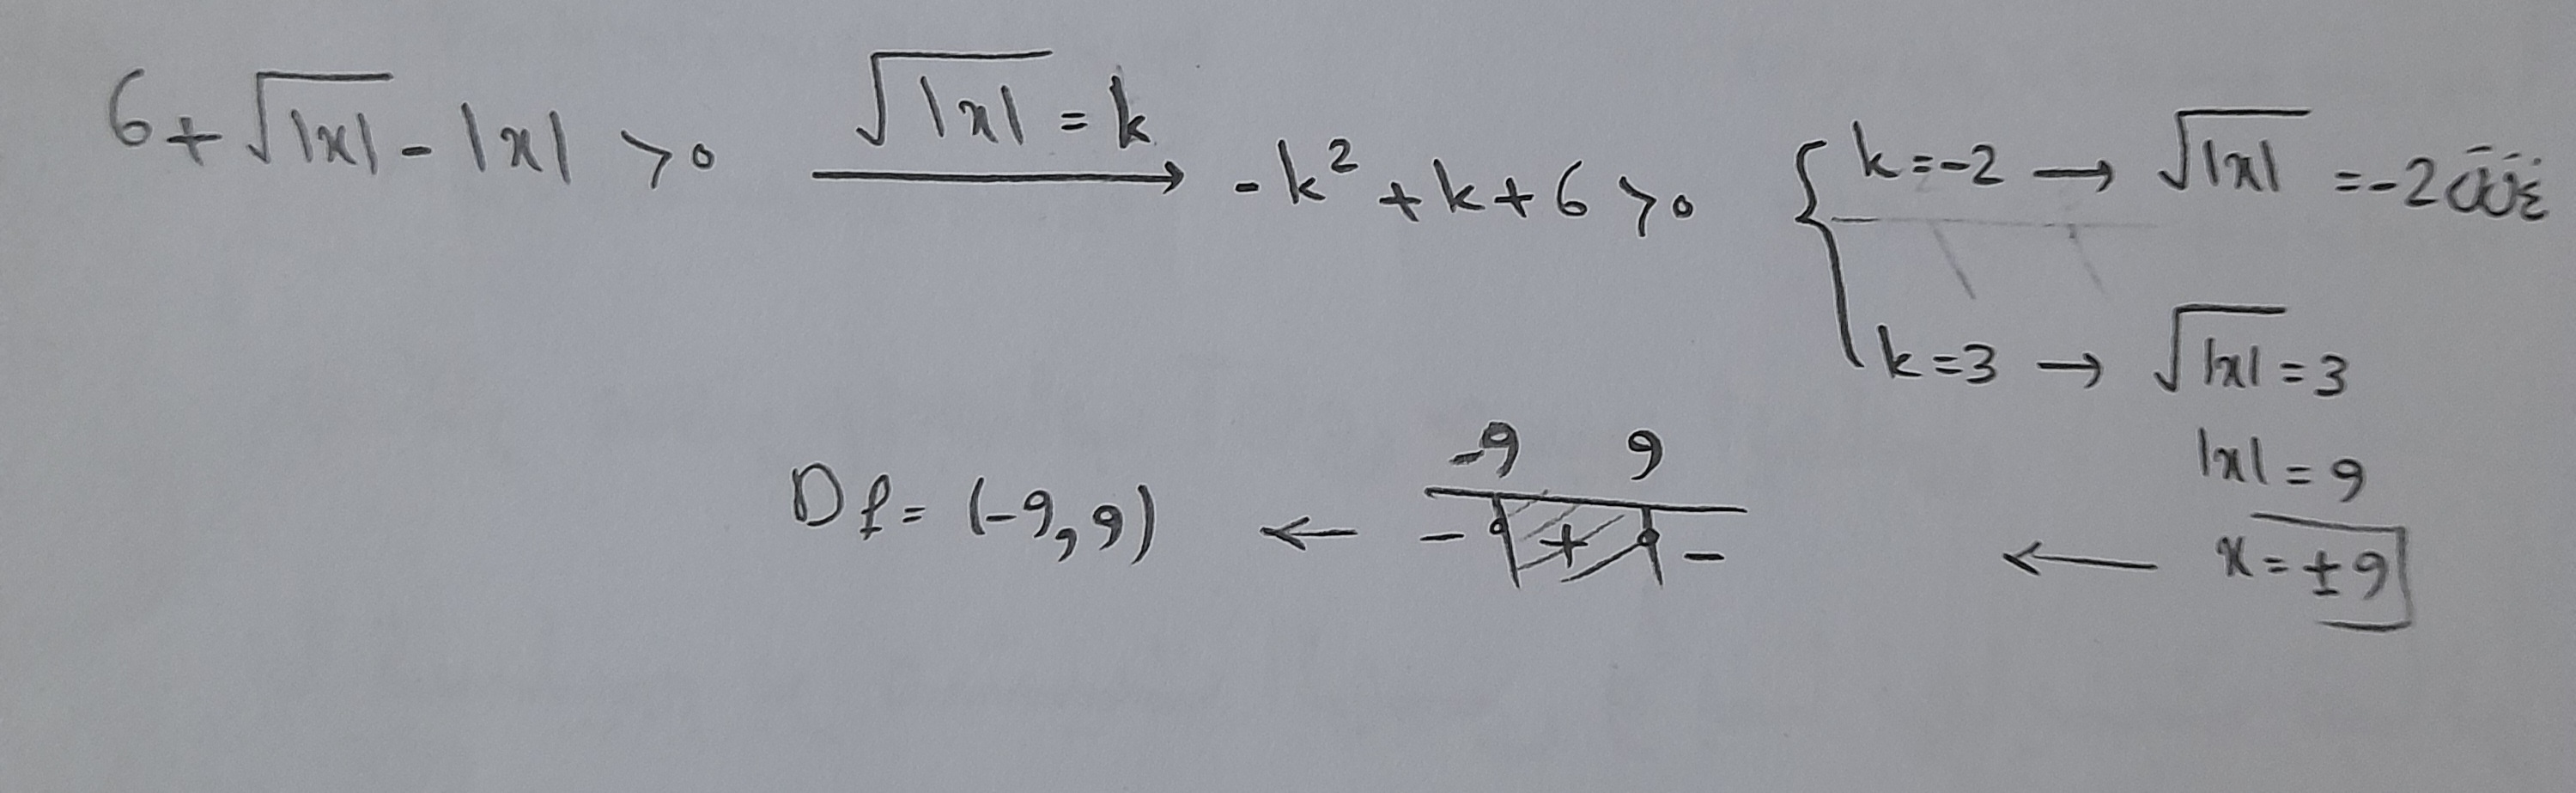 6+√|x| - |x| >0 √|x| = k → -k²+k+6>0 { k=-2 → √|x| =-2 غ ق ق
k=3 → √|x| =3
|x| =9
x=±9 ←
-9 9
- + -
← Df= (-9,9)